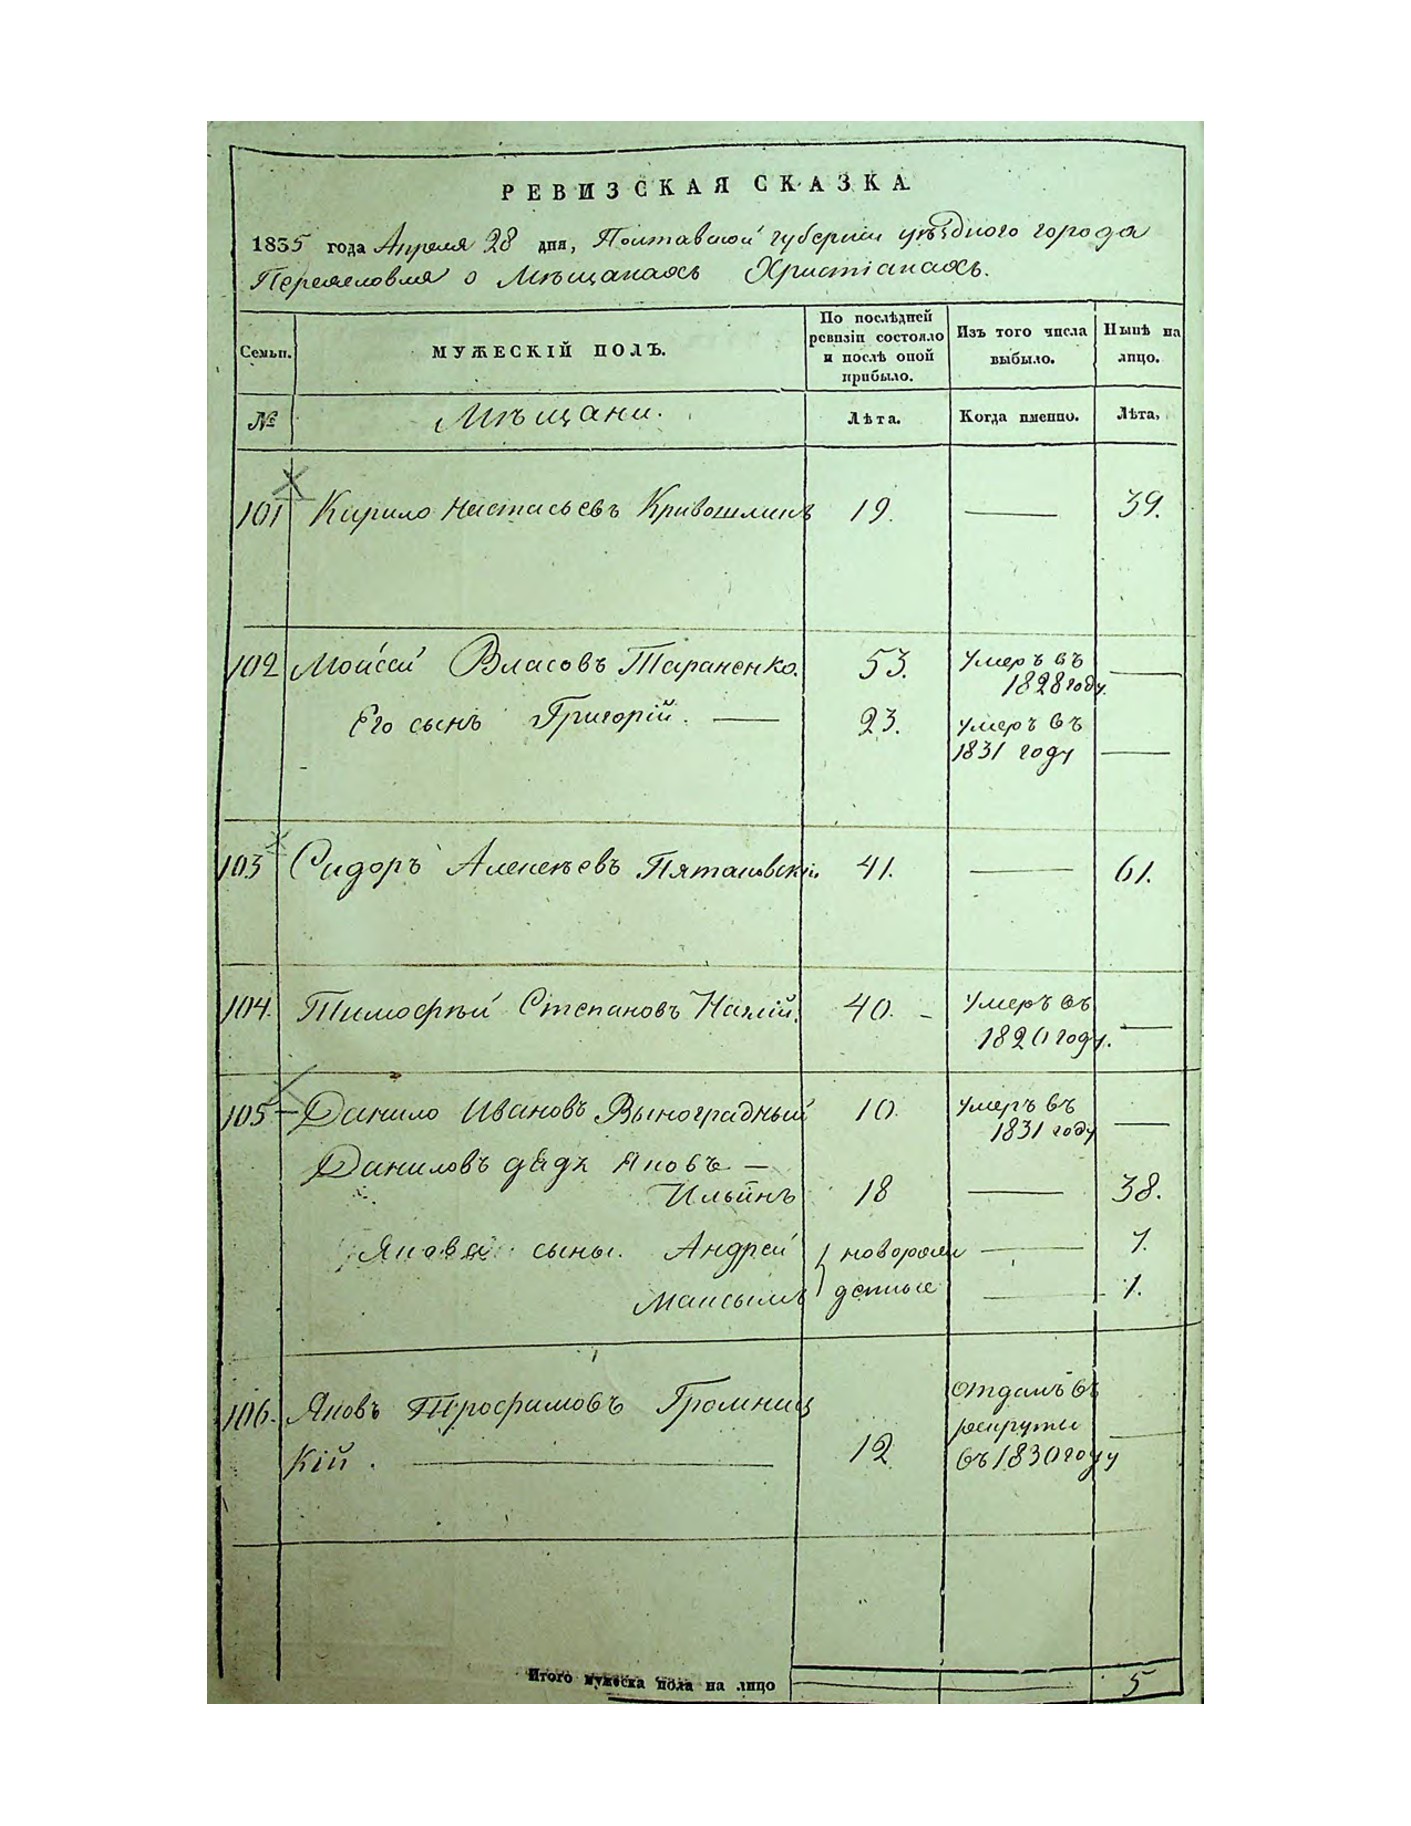 РЕВИЗСКАЯ СКАЗКА
1835 года Апреля 28 дня, Полтавской губернии уѣзднаго города
Переяславля о Мѣщанахъ Христіанахъ.
Семьи.
МУЖЕСКІЙ ПОЛЪ.
По послѣдней ревизіи состояло и послѣ оной прибыло.
Изъ того числа выбыло.
Нынѣ на лицо.
№
Мѣщани.
Лѣта.
Когда именно.
Лѣта.
101 Кирило Настасьевъ 19. 39.
102 Моисей Власовъ Тараненко. 53. Умеръ въ
1828 году.
Его сынъ Григорій. 23. Умеръ въ
1831 году
103 Сидоръ Алексѣевъ 41. 61.
104. Тимофѣй Степановъ 40. Умеръ въ
1820 году.
105 Данило Ивановъ Выноградный 10. Умеръ въ
1831 году
Даниловъ дядя Яковъ
Ильинъ 18 38.
Якова сыны. Андрей новорож 7.
Максымъ денные 1.
106. Яковъ Трофимовъ Громниц
кій. 12 Отданъ въ
рекруты
въ 1830 году
Итого мужеска пола на лицо 5